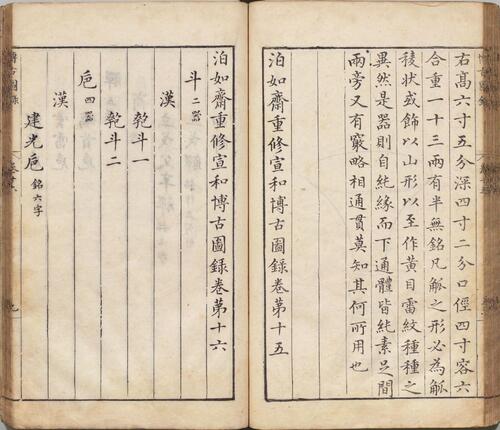 右高六寸五分深四寸二分口徑四寸容六
合重一十三兩有半無銘凡觚之形必為觚
稜狀或飾以山形以至作黃目雷紋種種之
異然是器則自純緣而下通體皆純素足間
兩旁又有竅略相通貫莫知其何所用也
泊如齋重修宣和博古圖錄卷第十五
泊如齋重修宣和博古圖錄卷第十六
斗二器
漢
匏斗一
匏斗二
巵四器
漢
建光巵銘六字